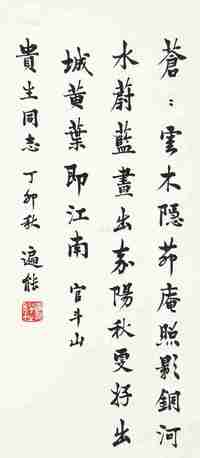 蒼〻雲木隱茆庵照影銅河
水蔚藍畫出嘉陽秋更好出
城黃葉即江南 官斗山
貴生同志 丁卯秋 遍能